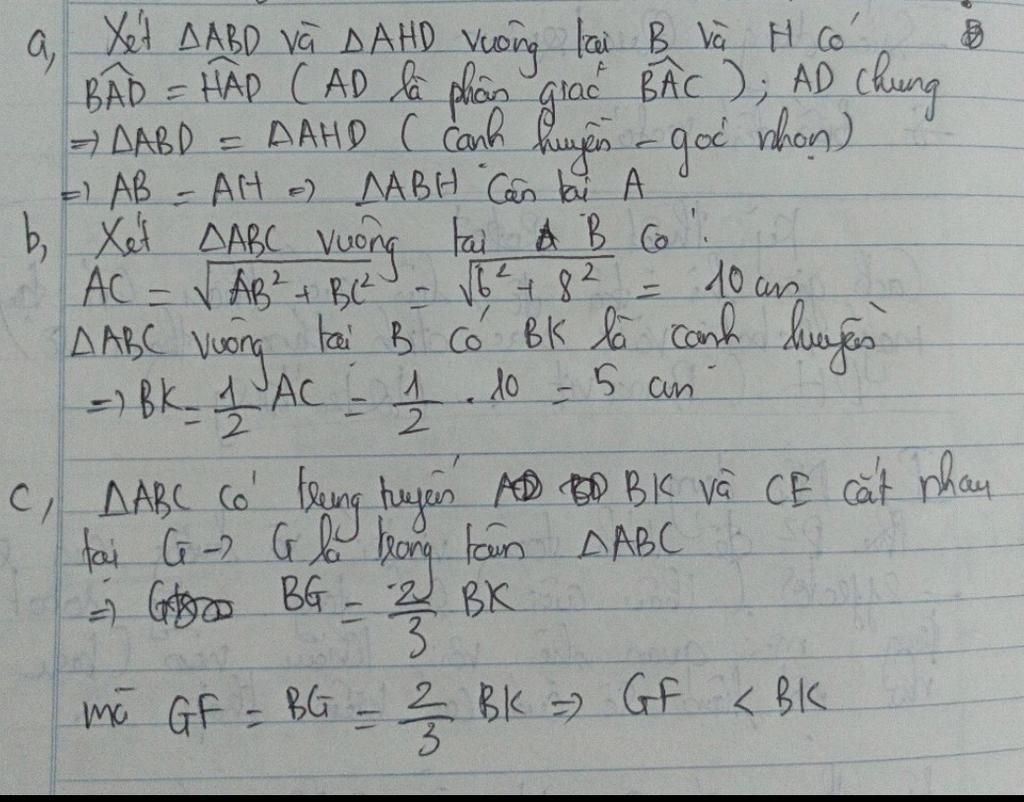 a, Xét ΔABD và ΔAHD vuông tại B và H có
BAD = HAD ( AD là phân giác BAC ) ; AD chung
=> ΔABD = ΔAHD ( cạnh huyền - góc nhọn)
=> AB = AH => ΔABH cân tại A
b, Xét ΔABC vuông tại B có :
AC = √AB² + BC² = √6² + 8² = 10 cm
ΔABC vuông tại B có BK là cạnh huyền
=> BK = 1/2 AC = 1/2 . 10 = 5 cm
c, ΔABC có trung tuyến BK và CE cắt nhau
tại G -> G là trọng tâm ΔABC
=> BG = 2/3 BK
mà GF = BG = 2/3 BK => GF < BK